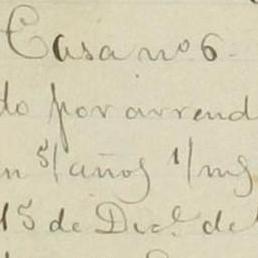 Casa nº 6.
do por arrend
n 5/ años 1/ ms
15 de Dicl. de